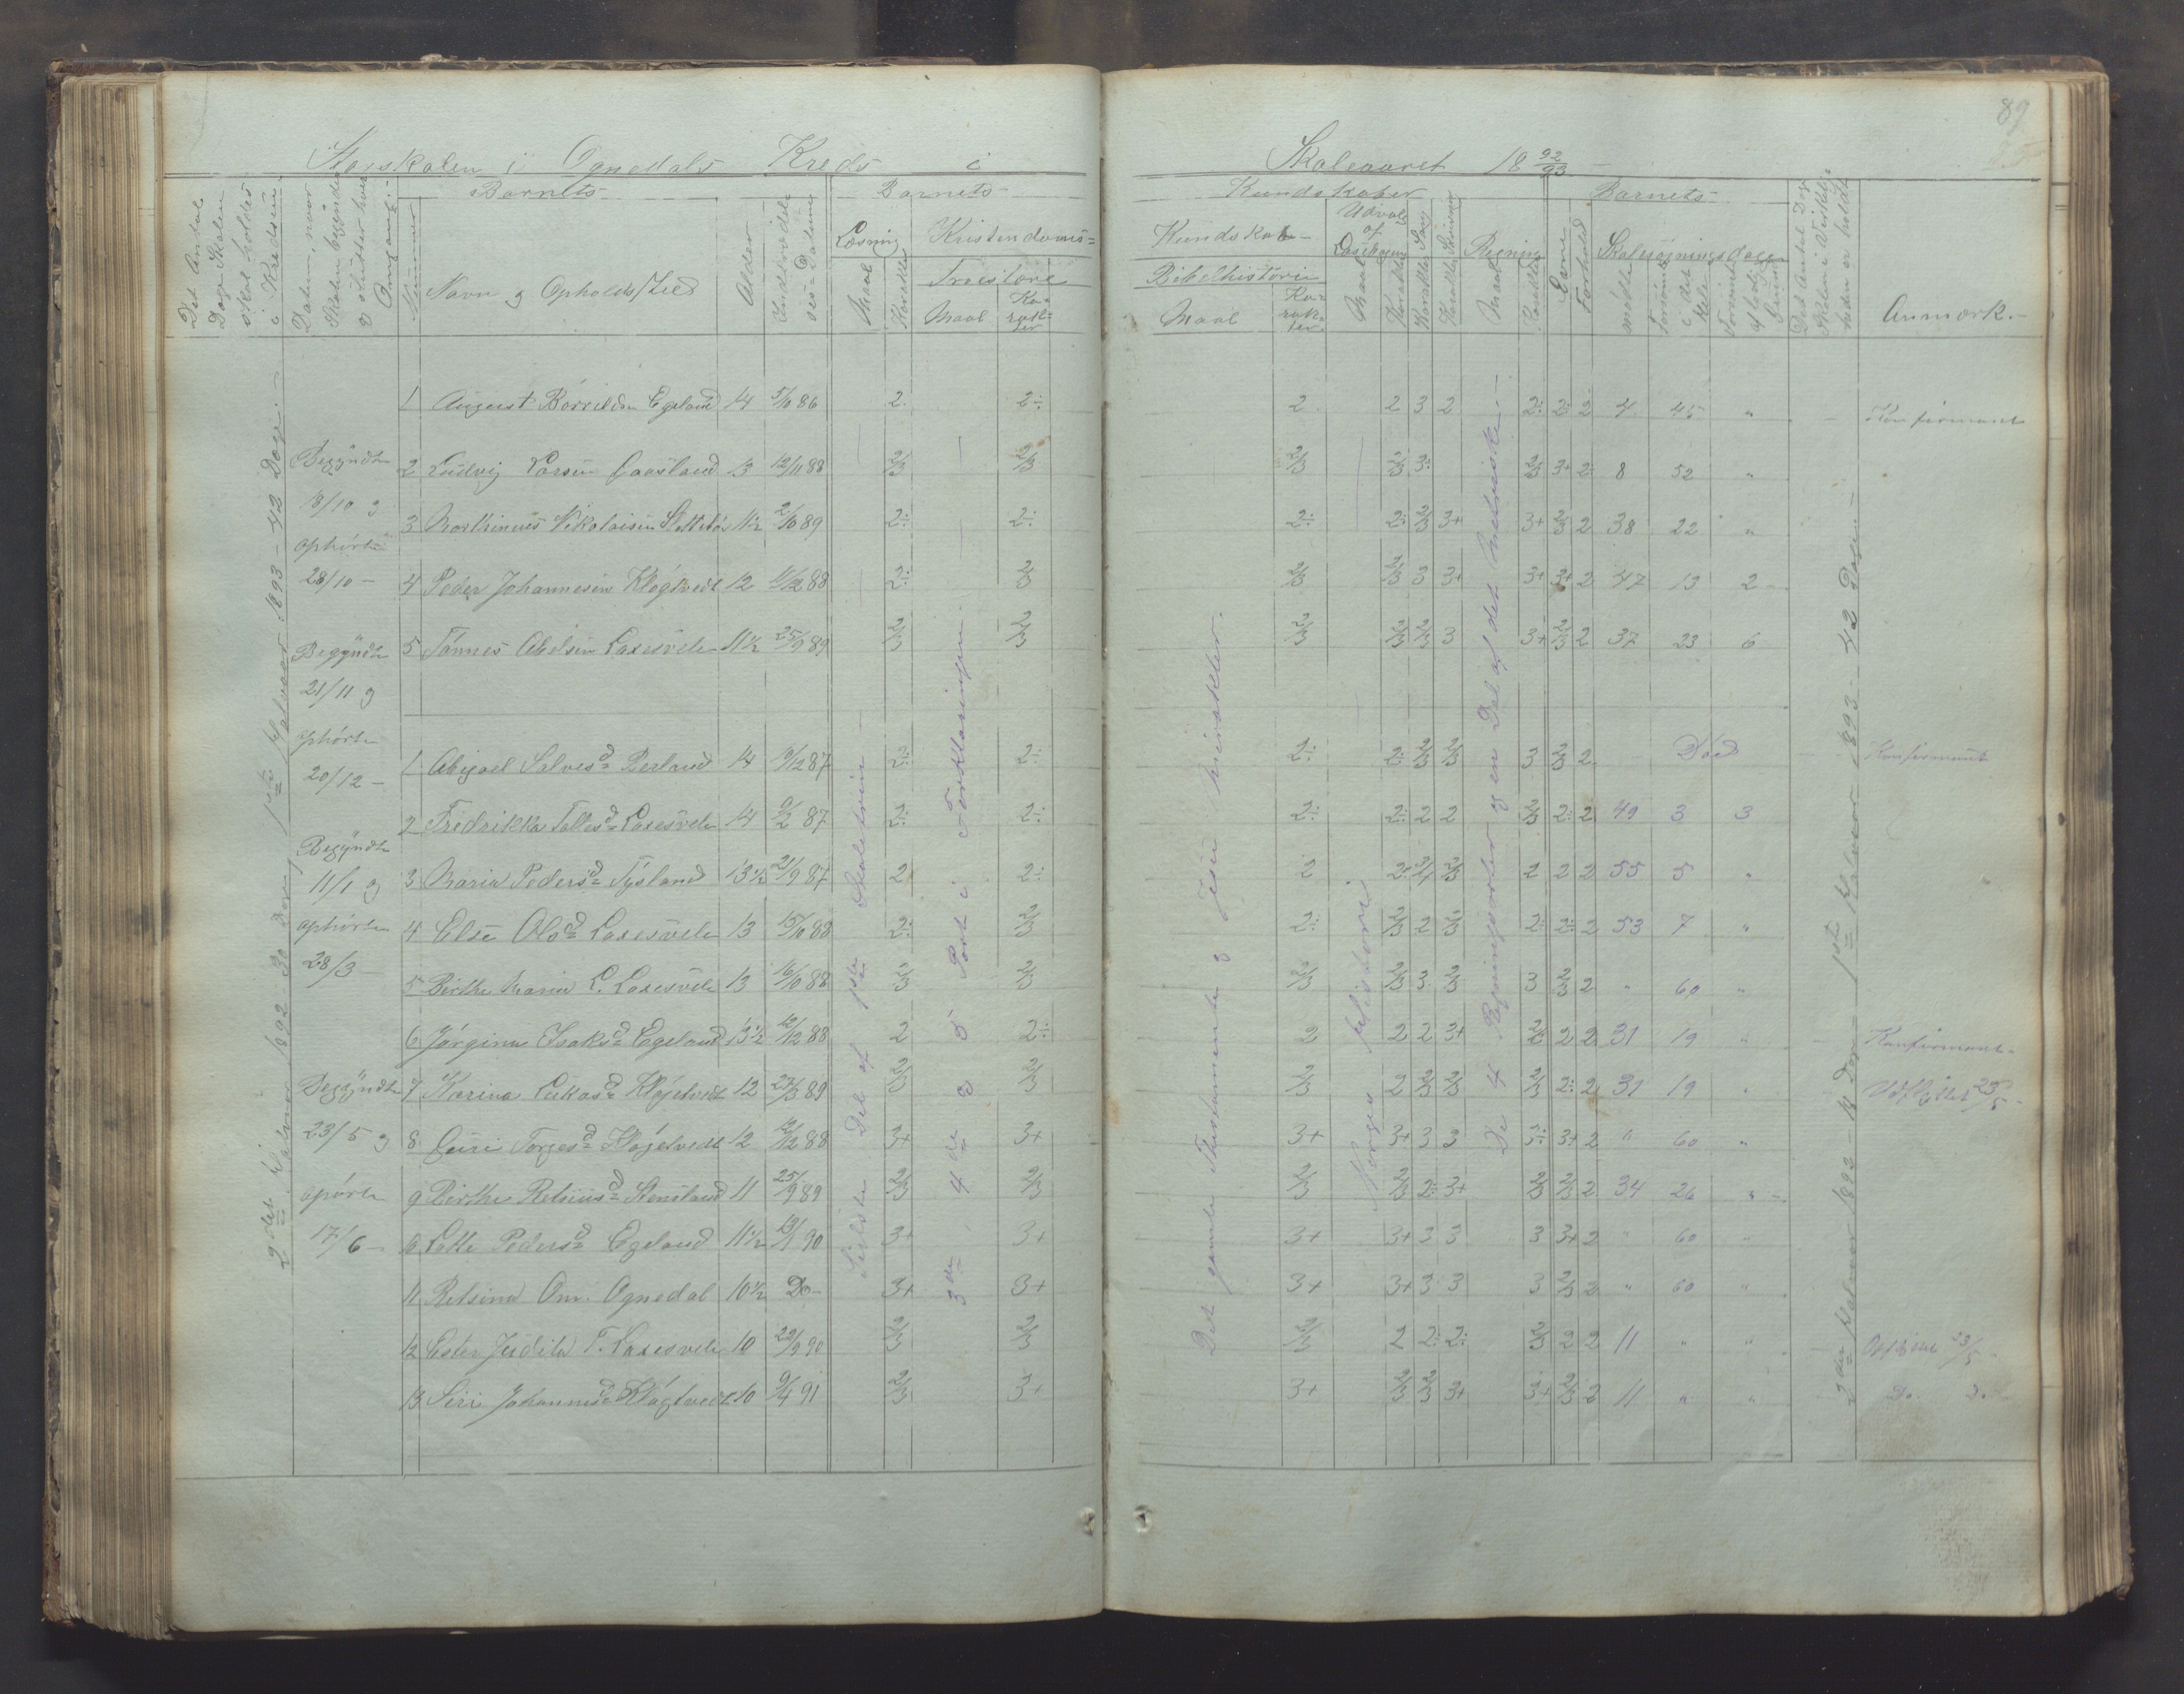 89
Storskolen i Ognedals Kreds i Skoleaaret 18 92/93
Det Antal Dage Skolen skal holdes i Kredsen.
Datum, naar Skolen begynder og slutter hver Omgang.
Barnets
Nummer
Navn og Opholdssted
Alder
Indtrædelses-Datum
Barnets
Læsning
Maal
Karakter
Kristendoms-
Troeslære
Maal
Karakter
Kundskaber
Kundskab
Bibelhistorie
Maal
Karakter
Udvalg af Læsebogen
Maal
Karakter
Karakter Sang
Karakter Skrivning
Regning
Maal
Karakter
Barnets
Evne
Forhold
Skolesøgningsdage
mødte
forsømte i det Hele
forsømte af lovlig Grund
Det Antal Dage Skolen i Virkeligheden er holdt
Anmærk.
2det Halvaar 1892 30 Dage / 1ste Halvaar 1893 - 42 Dage
Begyndte 18/10 og ophørte 28/10 -
Begyndte 21/11 og ophørte 20/12 -
Begyndte 11/1 og ophørte 28/3 -
Begyndte 23/5 og opørte 17/6 -
Sidste Del af 1ste Skoletrin -
3de 4de og 5 Part i Forklaringen
Det gamle Thestamente og Jesu Mirakler.
Norges Historie
De 4 Regningsarter og en Del af det Metriske.
1 August Borrildsen Egeland 14 5/10 86 2 2÷ 2 2 3 2 2÷ 2÷ 2 4 45 " Konfirmant
2 Ludvig Larsen Gaasland 13 12/11 88 2/3 2/3 2/3 2/3 3÷ 2/3 3+ 2 8 52 "
3 Marthinues Nikolaisen 11½ 2/10 89 2÷ 2÷ 2÷ 2÷ 2/3 3+ 3+ 2/3 2 38 22 "
4 Peder Johannesen Kløgtvedt 12 1/12 88 2÷ 2/3 2/3 2/3 3 3+ 3+ 3+ 2 47 13 2
5 Tønnes Abelsen Laxesvele 11½ 25/9 89 2/3 2/3 2/3 2/3 2/3 3 3+ 2/3 2 37 23 6
1 Abigael Salvesd Berland 14 9/12 87 2÷ 2÷ 2÷ 2÷ 2/3 2/3 3 2/3 2 Død Konfirmant
2 Fredrikka Tallesd Laxesvele 14 9/2 87 2÷ 2÷ 2÷ 2÷ 2 2 2/3 2÷ 2 49 3 3
3 Maria Pedersd Tysland 13½ 21/9 87 2 2÷ 2 2÷ 3/4 2/3 2 2 2 55 5 "
4 Else Olsd Laxesvele 13 15/10 88 2÷ 2/3 2÷ 2/3 2 2/3 2÷ 2÷ 2 53 7 "
5 Birthe Maria L. Laxesvele 13 16/10 88 2/3 2/3 2/3 2/3 3 2/3 3 2/3 2 " 60 "
6 Jørgine Isaksd Egeland 13½ 12/12 88 2 2÷ 2 2 2 3+ 2/3 2 2 31 19 " Konfirmant
7 Karina Lukasd Kløjetvedt 12 27/3 89 2/3 2/3 2/3 2 2/3 2/3 2/3 2÷ 2 31 19 " Udflyttet 23/5
8 Guri Torgesd Kløgetvedt 12 12/12 88 3+ 3+ 3+ 3+ 3 3 3÷ 3+ 2 " 60 "
9 Birthe Retsiusd Stensland 11 25/9 89 2/3 2/3 2/3 2/3 2÷ 3+ 2/3 2/3 2 34 26 "
10 Lotte Pedersd Egeland 11½ 19/1 90 3+ 3+ 3+ 3+ 3 3 3 3+ 2 " 60 "
11 Retsine Om. Ognedal 10½ Do- 3+ 3+ 3+ 3+ 3 3 3 2/3 2 " 60 "
12 Ester Judith T. Laxesvele 10 22/9 90 2/3 2/3 2/3 2 2÷ 2÷ 2/3 2 2 11 " " 23/5
13 Siri Johannesd Kløgtvedt 10 9/4 91 2/3 3+ 3+ 2/3 2/3 3+ 3+ 2/3 2 11 " " Do. Do
2det Halvaar 1892 - 18 Dage - 1ste Halvaar 1893 - 42 Dage -